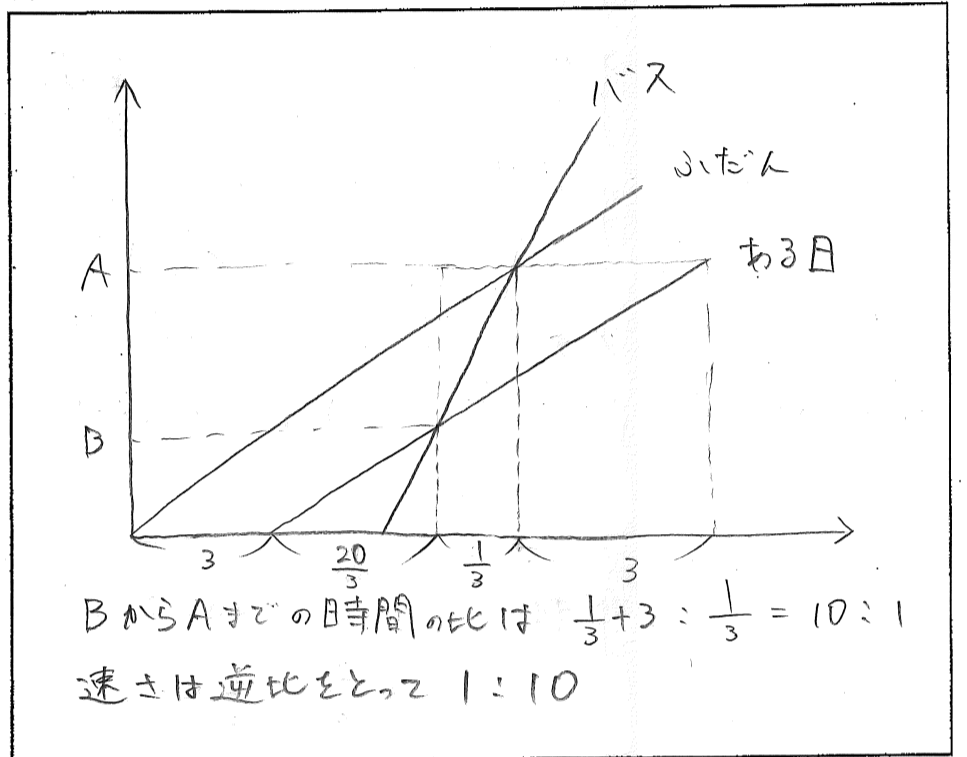 バス
ふだん
ある日
A
B
3
20/3
1/3
3
BからAまでの時間の比は 1/3+3:1/3=10:1
速さは逆比をとって 1:10